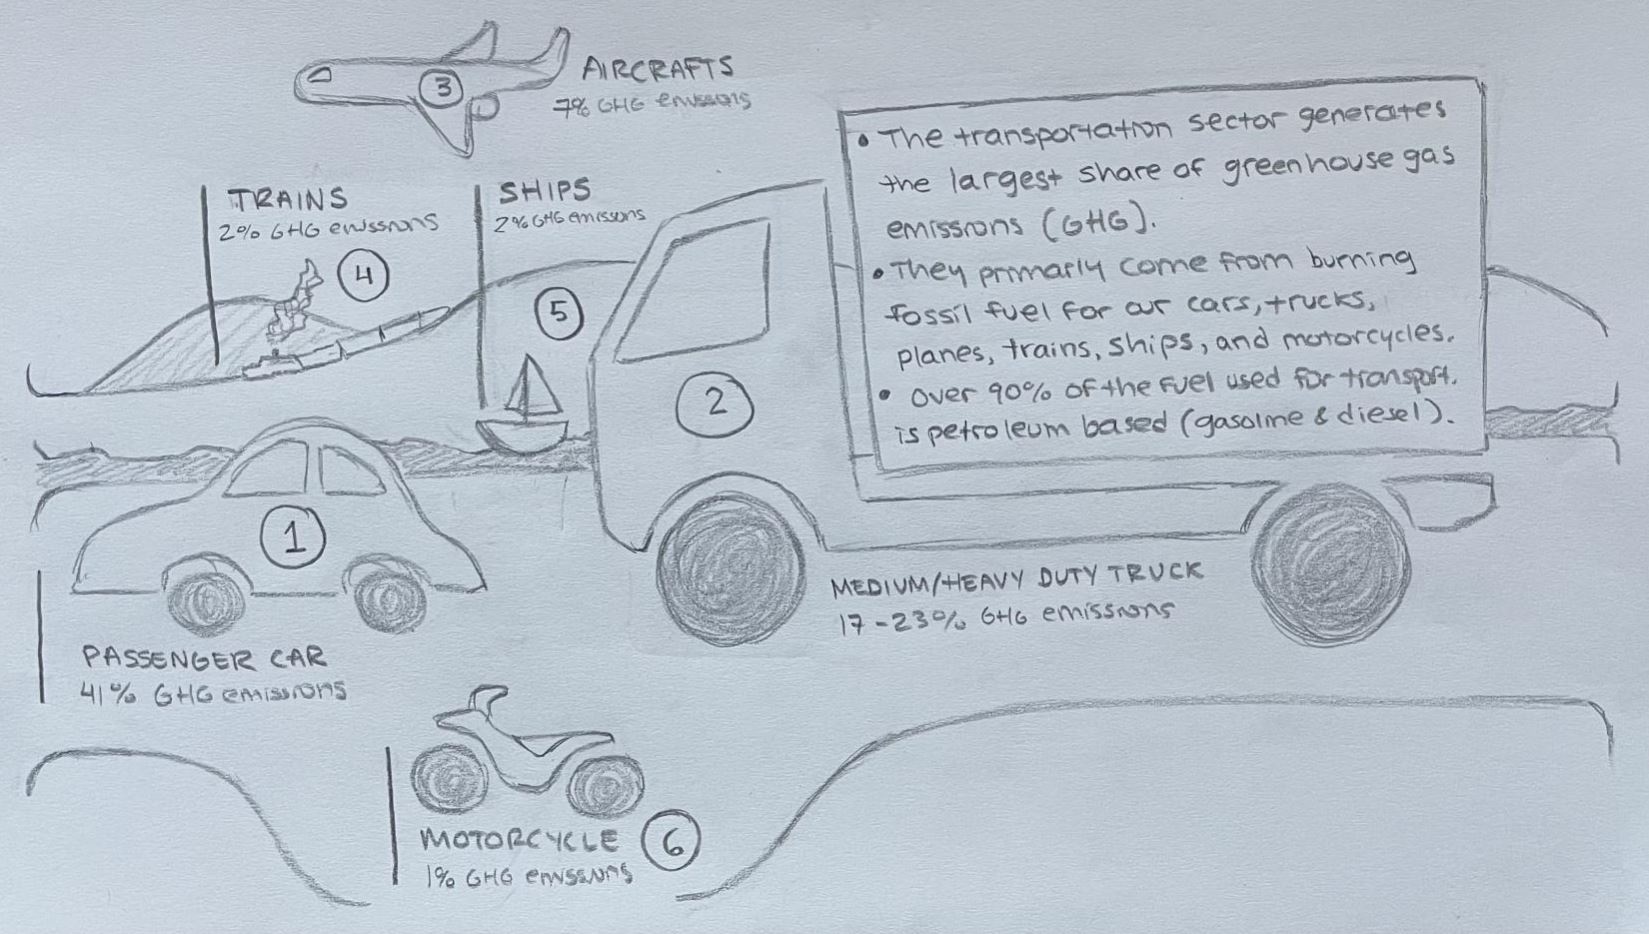 AIRCRAFTS
7% GHG emissions
3
TRAINS
2% GHG emissions
4
SHIPS
2% GHG emissions
5
• The transportation sector generates
the largest share of greenhouse gas
emissions (GHG).
• They primarly come from burning
fossil fuel for our cars, trucks,
planes, trains, ships, and motorcycles.
• Over 90% of the fuel used for transport.
is petroleum based (gasoline & diesel).
2
MEDIUM/HEAVY DUTY TRUCK
17-23% GHG emissions
1
PASSENGER CAR
41% GHG emissions
MOTORCYCLE
1% GHG emissions
6